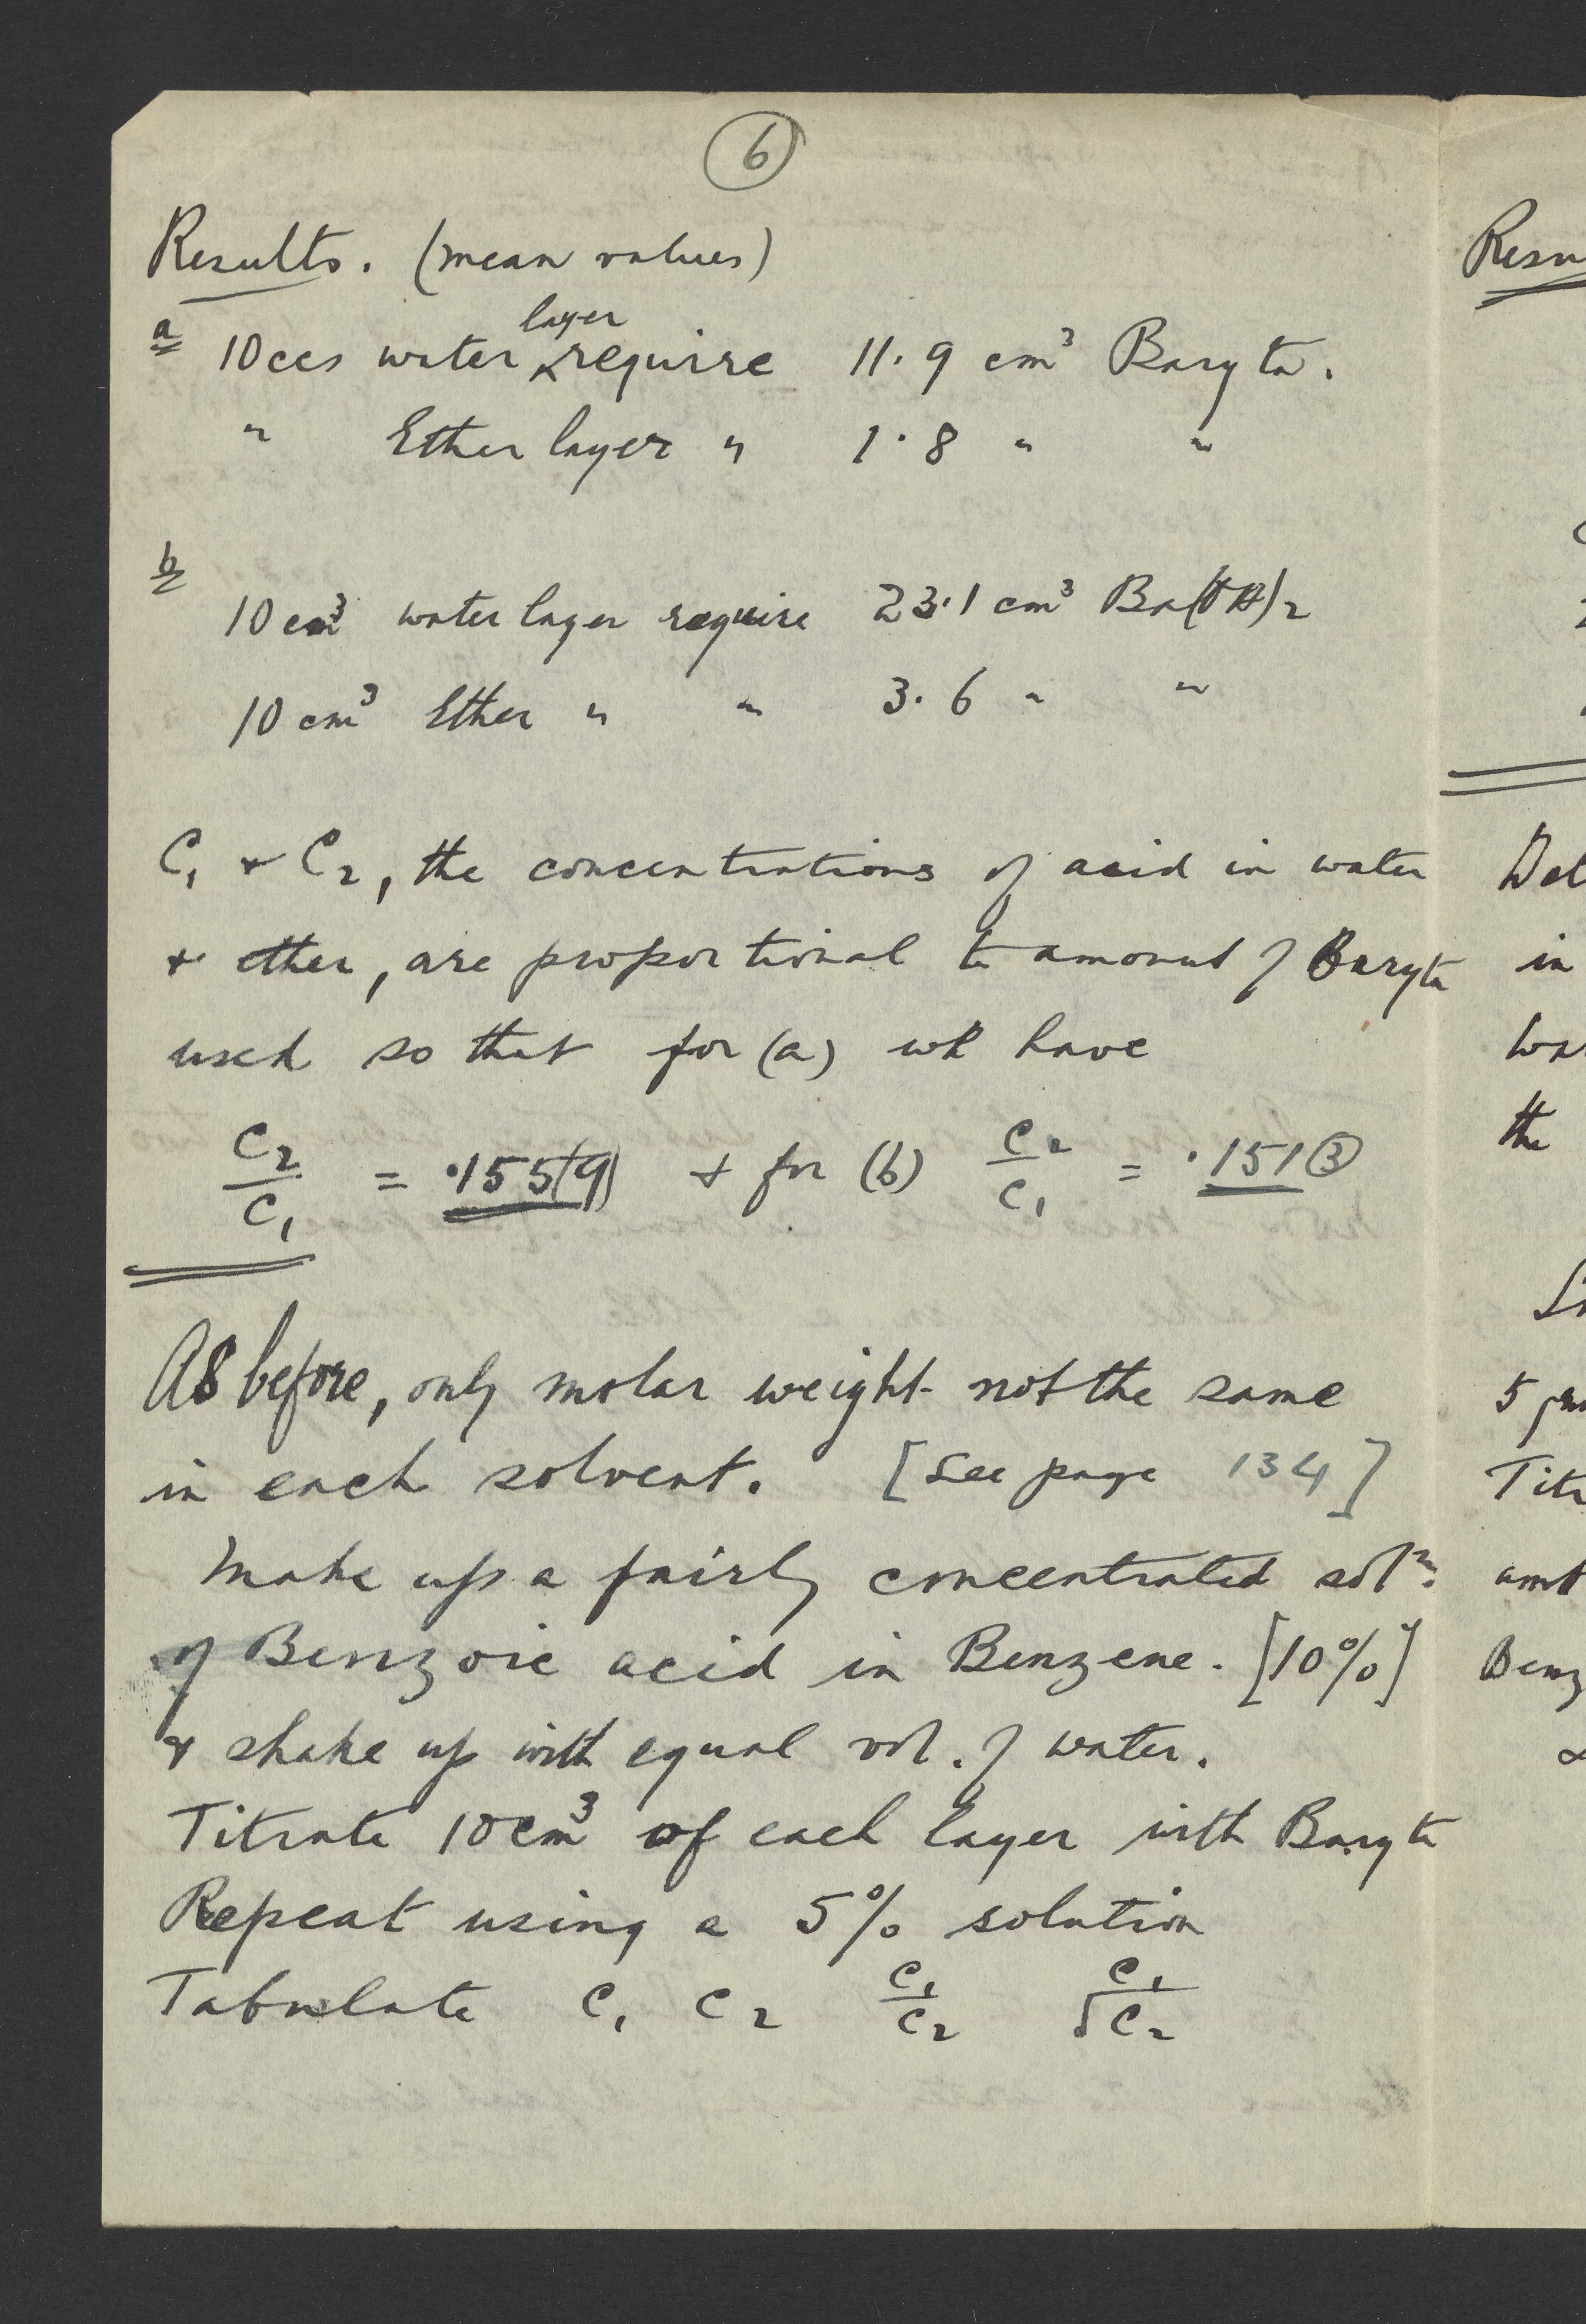 6
Results. (mean values)
a 10ccs water layer require 11.9 cm³ Baryta.
" Ether layer " 1.8 " "
b
10 cm³ water layer require 23.1 cm³ Ba(OH)₂
10 cm³ Ether " " 3.6 " "
C₁ & C₂, the concentrations of acid in water
& ether, are proportional to amount of Baryta
used so that for (a) we have
C₂/C₁ = .155(9) & for (b) C₂/C₁ = .151(3)
As before, only molar weight not the same
in each solvent. [See page 134]
Make up a fairly concentrated solⁿ.
of Benzoic acid in Benzene. [10%]
& shake up with equal vol. of water.
Titrate 10cm³ of each layer with Baryta
Repeat using a 5% solution
Tabulate C₁ C₂ C₁/C₂ C₁/√C₂
Resu
Det
in
the
5 gm
Titr
amt
Benz